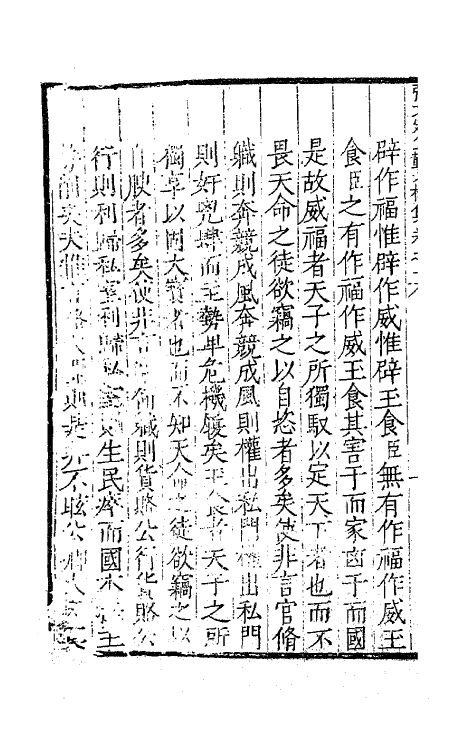 辟作福惟辟作威惟辟王食臣無有作福作威王
食臣之有作福作威王食其害于而家凶于而國
是故威福者天子之所獨馭以定天下者也而不
畏天命之徒欲竊之以自恣者多矣使非言官脩
職則奔競成風奔競成風則權出私門權出私門
則奸兇肆而主勢卑危機駸矣 者天子之所
獨享以固大寶者也而不知天命之徒欲竊之以
自腴者多矣使非言官脩職則貨賂公行貨賂公
行則利歸私室利歸私室則生民瘠而國本
矣夫惟言路 則是非不眩公